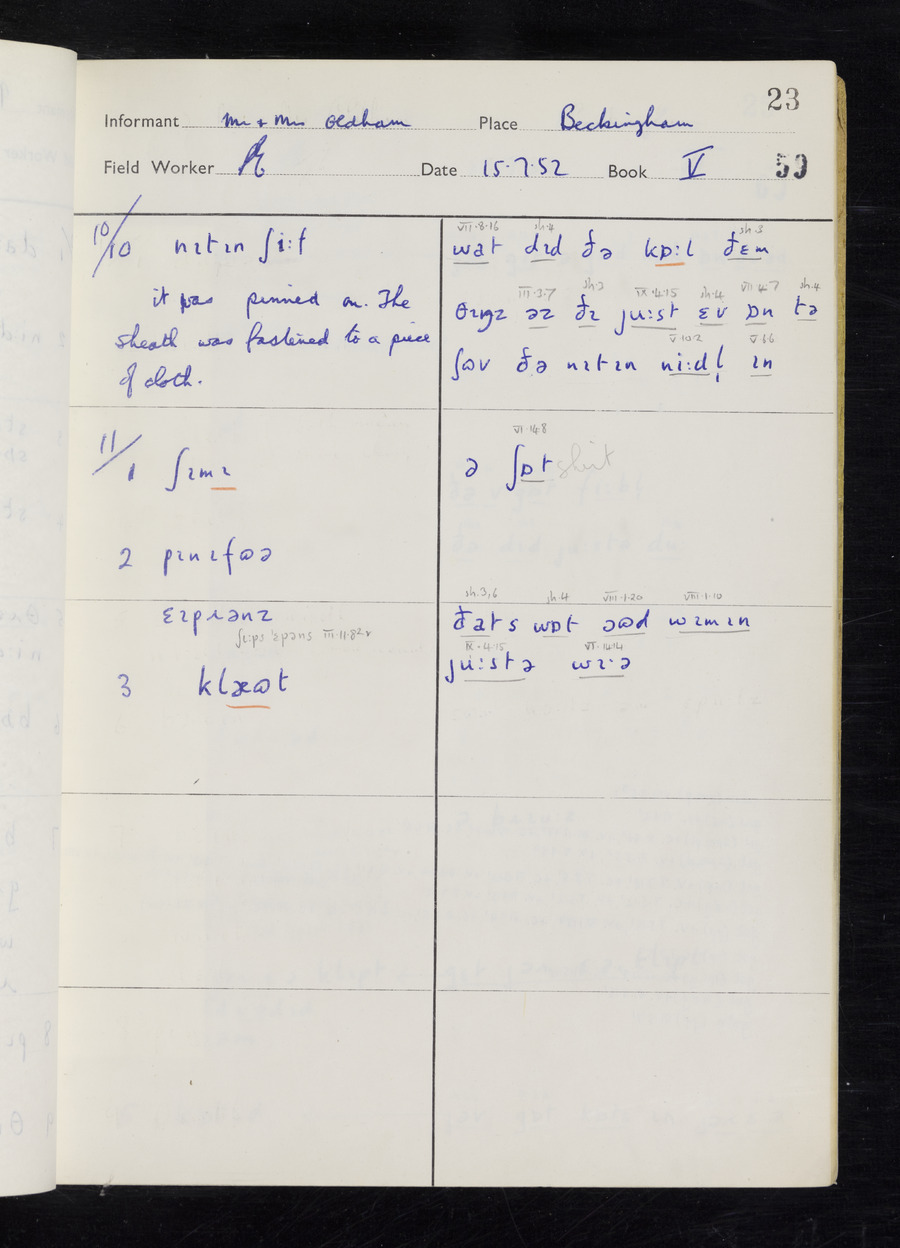 23
Informant Mr & Mrs Oldham Place Beckingham
Field Worker Date 15·7·52 Book V 59
10/10 nɪtɪn ʃiːf
it was pinned on. The
sheath was fastened to a piece
of cloth.
VII·8·16 sh·4 sh·3
wat dɪd ðə kɒːl ðɛm
III·3·7 sh·3 IX·4·15 sh·4 VII·4·7 sh·4
θɪŋz əz ðɪ juːst ɛv ɒn tə
V·10·2 V·6·6
ʃɷv ðə nɪtɪn niːdl̩ ɪn
11/1 ʃɪmɪ
VI·14·8
ə ʃɒt shirt
2 pɪnɪfɷə
ɛɪpɹənz
ʃiːps ˈɛpəns III·11·8
sh.3,6 sh·4 VIII·1·20 VIII·1·10
ðats wɒt əɷd wɪmɪn
IX·4·15 VI·14·14
juːstə wɪˑə
3 klæɷt